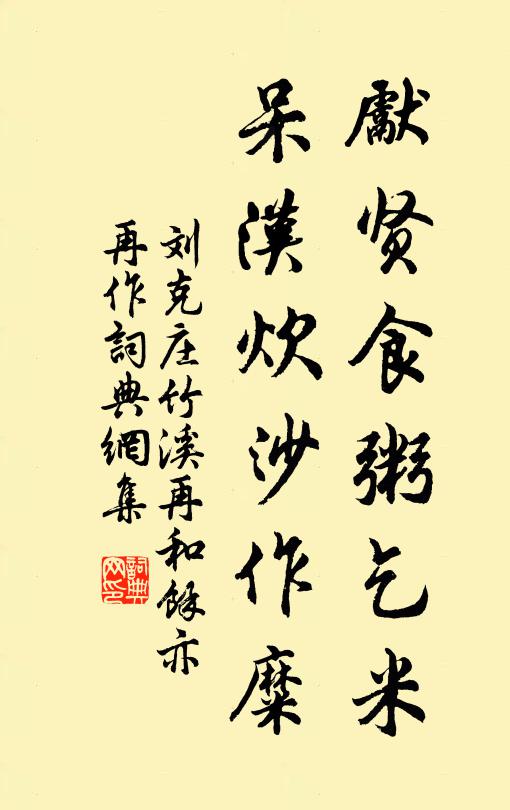 獻贤食粥乞米
呆漢炊沙作糜
刘克庄竹溪再和餘亦
再作詞典網集
詞典
网印